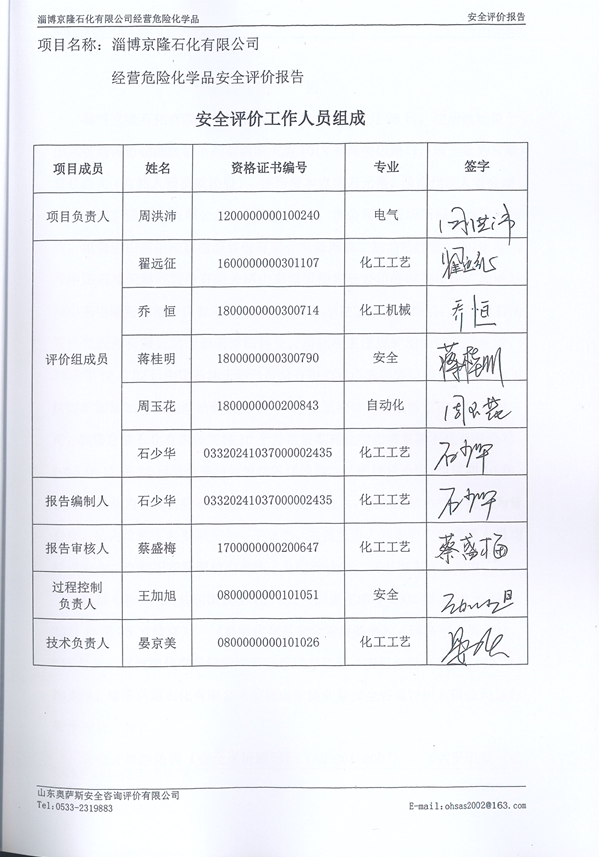 淄博京隆石化有限公司经营危险化学品 安全评价报告
项目名称：淄博京隆石化有限公司
经营危险化学品安全评价报告
安全评价工作人员组成
项目成员 姓名 资格证书编号 专业 签字
项目负责人 周洪沛 1200000000100240 电气 周洪沛
评价组成员 翟远征 1600000000301107 化工工艺 翟远征
乔 恒 1800000000300714 化工机械 乔恒
蒋桂明 1800000000300790 安全 蒋桂明
周玉花 1800000000200843 自动化 周玉花
石少华 03320241037000002435 化工工艺 石少华
报告编制人 石少华 03320241037000002435 化工工艺 石少华
报告审核人 蔡盛梅 1700000000200647 化工工艺 蔡盛梅
过程控制
负责人 王加旭 0800000000101051 安全
技术负责人 晏京美 0800000000101026 化工工艺
山东奥萨斯安全咨询评价有限公司
Tel:0533-2319883 E-mail:ohsas2002@163.com